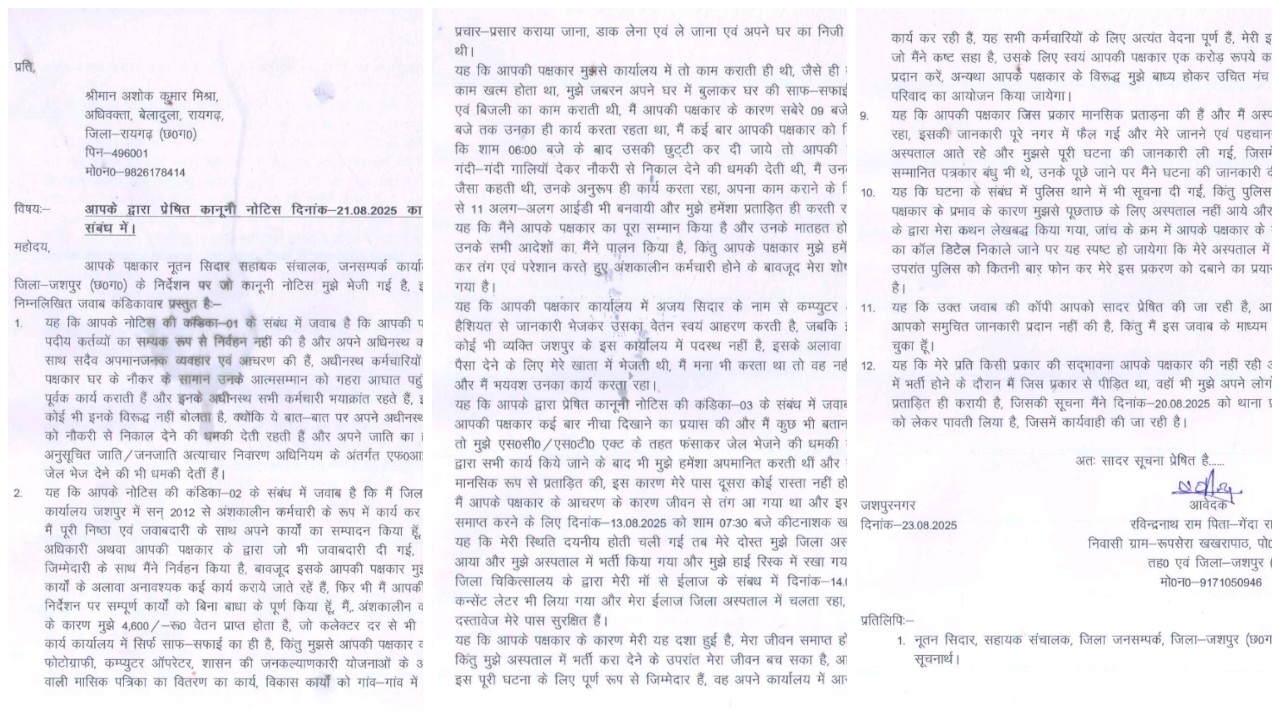 प्रति,
श्रीमान अशोक कुमार मिश्रा,
अधिवक्ता, बेलादुला, रायगढ़,
जिला–रायगढ़ (छ0ग0)
पिन–496001
मो0न0–9826178414
विषयः– आपके द्वारा प्रेषित कानूनी नोटिस दिनांक–21.08.2025 का
संबंध में।
महोदय,
आपके पक्षकार नूतन सिदार सहायक संचालक, जनसम्पर्क कार्या
जिला–जशपुर (छ0ग0) के निर्देशन पर जो कानूनी नोटिस मुझे भेजी गई है,
निम्नलिखित जवाब कंडिकावार प्रस्तुत हैः–
1. यह कि आपके नोटिस की कंडिका–01 के संबंध में जवाब है कि आपकी
पदीय कर्तव्यों का सम्यक रूप से निर्वहन नहीं की है और अपने अधिनस्थ
साथ सदैव अपमानजनक व्यवहार एवं आचरण की हैं, अधीनस्थ कर्मचारियों
पक्षकार घर के नौकर के सामान उनके आत्मसम्मान को गहरा आघात पहुं
पूर्वक कार्य कराती हैं और इनके अधीनस्थ सभी कर्मचारी भयाक्रांत रहते हैं,
कोई भी इनके विरूद्ध नहीं बोलता है, क्योंकि ये बात–बात पर अपने अधीनस्थ
को नौकरी से निकाल देने की धमकी देती रहती हैं और अपने जाति का
अनुसूचित जाति/जनजाति अत्याचार निवारण अधिनियम के अंतर्गत एफ0आ
जेल भेज देने की भी धमकी देतीं हैं।
2. यह कि आपके नोटिस की कंडिका–02 के संबंध में जवाब है कि मैं जिला
कार्यालय जशपुर में सन् 2012 से अंशकालीन कर्मचारी के रूप में कार्य कर
मैं पूरी निष्ठा एवं जवाबदारी के साथ अपने कार्यो का सम्पादन किया हूँ,
अधिकारी अथवा आपकी पक्षकार के द्वारा जो भी जवाबदारी दी गई,
जिम्मेदारी के साथ मैंने निर्वहन किया है, बावजूद इसके आपकी पक्षकार मु
कार्यों के अलावा अनावश्यक कई कार्य कराये जाते रहें हैं, फिर भी मैं आपकी
निर्देशन पर सम्पूर्ण कार्यो को बिना बाधा के पूर्ण किया हूँ, मैं, अंशकालीन
के कारण मुझे 4,600/–रू0 वेतन प्राप्त होता है, जो कलेक्टर दर से भी
कार्य कार्यालय में सिर्फ साफ–सफाई का ही है, किंतु मुझसे आपकी पक्षकार
फोटोग्राफी, कम्प्युटर ऑपरेटर, शासन की जनकल्याणकारी योजनाओं के
वाली मासिक पत्रिका का वितरण का कार्य, विकास कार्यो को गांव–गांव में
प्रचार–प्रसार कराया जाना, डाक लेना एवं ले जाना एवं अपने घर का निजी
थी।
यह कि आपकी पक्षकार मुझसे कार्यालय में तो काम कराती ही थी, जैसे ही
काम खत्म होता था, मुझे जबरन अपने घर में बुलाकर घर की साफ–सफाई
एवं बिजली का काम कराती थी, मैं आपकी पक्षकार के कारण सबेरे 09 बजे
बजे तक उनका ही कार्य करता रहता था, मैं कई बार आपकी पक्षकार को
कि शाम 06:00 बजे के बाद उसकी छुट्टी कर दी जाये तो आपकी
गंदी–गंदी गालियाँ देकर नौकरी से निकाल देने की धमकी देती थी, मैं उन
जैसा कहती थी, उनके अनुरूप ही कार्य करता रहा, अपना काम कराने के
से 11 अलग–अलग आईडी भी बनवायी और मुझे हमेंशा प्रताड़ित ही करती
यह कि मैंने आपके पक्षकार का पूरा सम्मान किया है और उनके मातहत हो
उनके सभी आदेशों का मैंने पालन किया है, किंतु आपके पक्षकार मुझे हमें
कर तंग एवं परेशान करते हुए अंशकालीन कर्मचारी होने के बावजूद मेरा शोष
गया है।
यह कि आपकी पक्षकार कार्यालय में अजय सिदार के नाम से कम्प्युटर
हैशियत से जानकारी भेजकर उसका वेतन स्वयं आहरण करती है, जबकि
कोई भी व्यक्ति जशपुर के इस कार्यालय में पदस्थ नहीं है, इसके अलावा
पैसा देने के लिए मेरे खाता में भेजती थी, मैं मना भी करता था तो वह नहीं
और मैं भयवश उनका कार्य करता रहा।
यह कि आपके द्वारा प्रेषित कानूनी नोटिस की कंडिका–03 के संबंध में जवाब
आपकी पक्षकार कई बार नीचा दिखाने का प्रयास की और मैं कुछ भी बतान
तो मुझे एस0सी0/एस0टी0 एक्ट के तहत फंसाकर जेल भेजने की धमकी
द्वारा सभी कार्य किये जाने के बाद भी मुझे हमेंशा अपमानित करती थीं और
मानसिक रूप से प्रताड़ित की, इस कारण मेरे पास दूसरा कोई रास्ता नहीं हो
मैं आपके पक्षकार के आचरण के कारण जीवन से तंग आ गया था और इस
समाप्त करने के लिए दिनांक–13.08.2025 को शाम 07:30 बजे कीटनाशक ख
यह कि मेरी स्थिति दयनीय होती चली गई तब मेरे दोस्त मुझे जिला अस्
आया और मुझे अस्पताल में भर्ती किया गया और मुझे हाई रिस्क में रखा गय
जिला चिकित्सालय के द्वारा मेरी मॉं से ईलाज के संबंध में दिनांक–14.0
कन्सेंट लेटर भी लिया गया और मेरा ईलाज जिला अस्पताल में चलता रहा,
दस्तावेज मेरे पास सुरक्षित हैं।
यह कि आपके पक्षकार के कारण मेरी यह दशा हुई है, मेरा जीवन समाप्त हो
किंतु मुझे अस्पताल में भर्ती करा देने के उपरांत मेरा जीवन बच सका है, आ
इस पूरी घटना के लिए पूर्ण रूप से जिम्मेदार हैं, वह अपने कार्यालय में आ
कार्य कर रही हैं, यह सभी कर्मचारियों के लिए अत्यंत वेदना पूर्ण हैं, मेरी इ
जो मैंने कष्ट सहा है, उसके लिए स्वयं आपकी पक्षकार एक करोड़ रूपये क
प्रदान करें, अन्यथा आपके पक्षकार के विरूद्ध मुझे बाध्य होकर उचित मंच
परिवाद का आयोजन किया जायेगा।
9. यह कि आपकी पक्षकार जिस प्रकार मानसिक प्रताड़ना की हैं और मैं अस्प
रहा, इसकी जानकारी पूरे नगर में फैल गई और मेरे जानने एवं पहचान
अस्पताल आते रहे और मुझसे पूरी घटना की जानकारी ली गई, जिसमें
सम्मानित पत्रकार बंधु भी थे, उनके पूछे जाने पर मैंने घटना की जानकारी दी
10. यह कि घटना के संबंध में पुलिस थाने में भी सूचना दी गई, किंतु पुलिस
पक्षकार के प्रभाव के कारण मुझसे पूछताछ के लिए अस्पताल नहीं आये और
के द्वारा मेरा कथन लेखबद्ध किया गया, जांच के क्रम में आपके पक्षकार के
का कॉल डिटेल निकाले जाने पर यह स्पष्ट हो जायेगा कि मेरे अस्पताल में
उपरांत पुलिस को कितनी बार फोन कर मेरे इस प्रकरण को दबाने का प्रया
है।
11. यह कि उक्त जवाब की कॉपी आपको सादर प्रेषित की जा रही है, आ
आपको समुचित जानकारी प्रदान नहीं की है, किंतु मैं इस जवाब के माध्यम
चुका हूँ।
12. यह कि मेरे प्रति किसी प्रकार की सद्भावना आपके पक्षकार की नहीं रही
में भर्ती होने के दौरान मैं जिस प्रकार से पीड़ित था, वहॉं भी मुझे अपने लोगों
प्रताड़ित ही करायी है, जिसकी सूचना मैंने दिनांक–20.08.2025 को थाना प्र
को लेकर पावती लिया है, जिसमें कार्यवाही की जा रही है।
अतः सादर सूचना प्रेषित है......
आवेदक
जशपुरनगर
दिनांक–23.08.2025
रविन्द्रनाथ राम पिता–गेंदा रा
निवासी ग्राम–रूपसेरा खखरापाठ, पो0
तह0 एवं जिला–जशपुर (
मो0न0–9171050946
प्रतिलिपिः–
1. नूतन सिदार, सहायक संचालक, जिला जनसम्पर्क, जिला–जशपुर (छ0ग
सूचनार्थ।